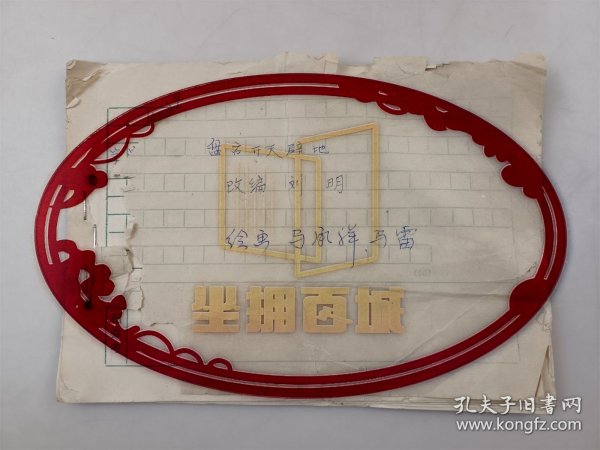 盘古开天辟地
改编 刘 明
绘画 马成祥、马雷
坐拥百城
孔夫子旧书网
www.kongfz.com